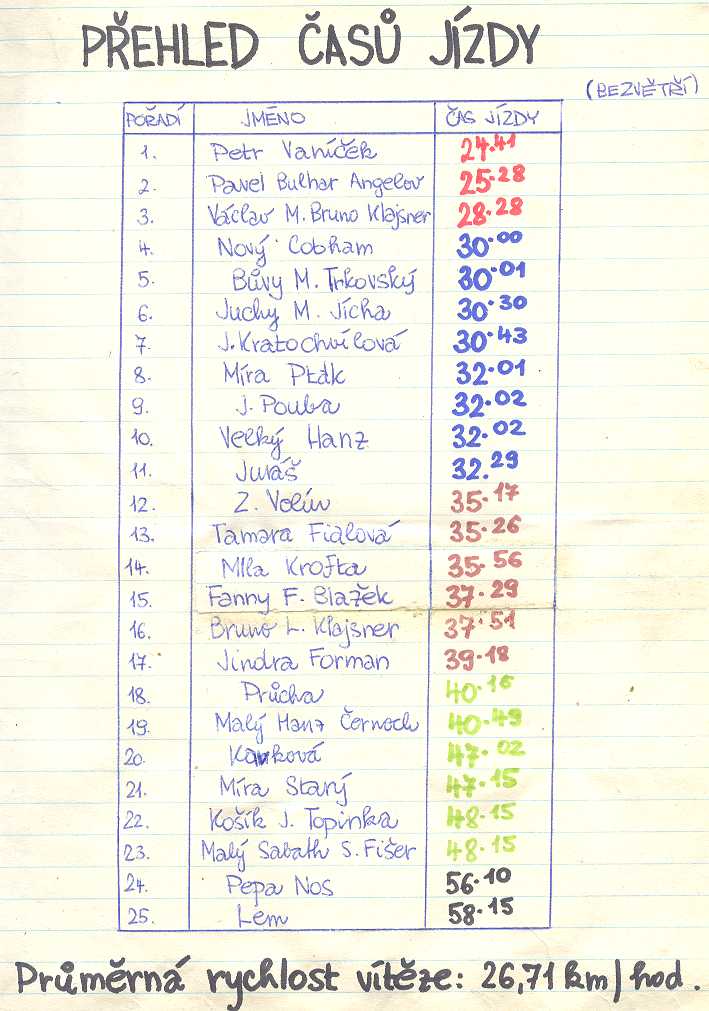 PŘEHLED ČASŮ JÍZDY
(BEZVĚTŘÍ)
POŘADÍ JMÉNO ČAS JÍZDY
1. Petr Vaníček 24.41
2. Pavel Bulhar Angelov 25.28
3. Václav M. Bruno Klajsner 28.28
4. Nový Cobham 30.00
5. Bůvy M. Trkovský 30.01
6. Juchy M. Jícha 30.30
7. J. Kratochvílová 30.43
8. Míra Pták 32.01
9. J. Pouba 32.02
10. Velký Hanz 32.02
11. Juráš 32.29
12. Z. Volín 35.17
13. Tamara Fialová 35.26
14. Míla Krofta 35.56
15. Fanny F. Blažek 37.29
16. Bruno L. Klajsner 37.51
17. Jindra Forman 39.18
18. Průcha 40.16
19. Malý Hanz Černoch 40.49
20. Kavková 47.02
21. Míra Starý 47.15
22. Košík J. Topinka 48.15
23. Malý Sabath S. Fišer 48.15
24. Pepa Nos 56.10
25. Lem 58.15
Průměrná rychlost vítěze: 26,71 km/hod.